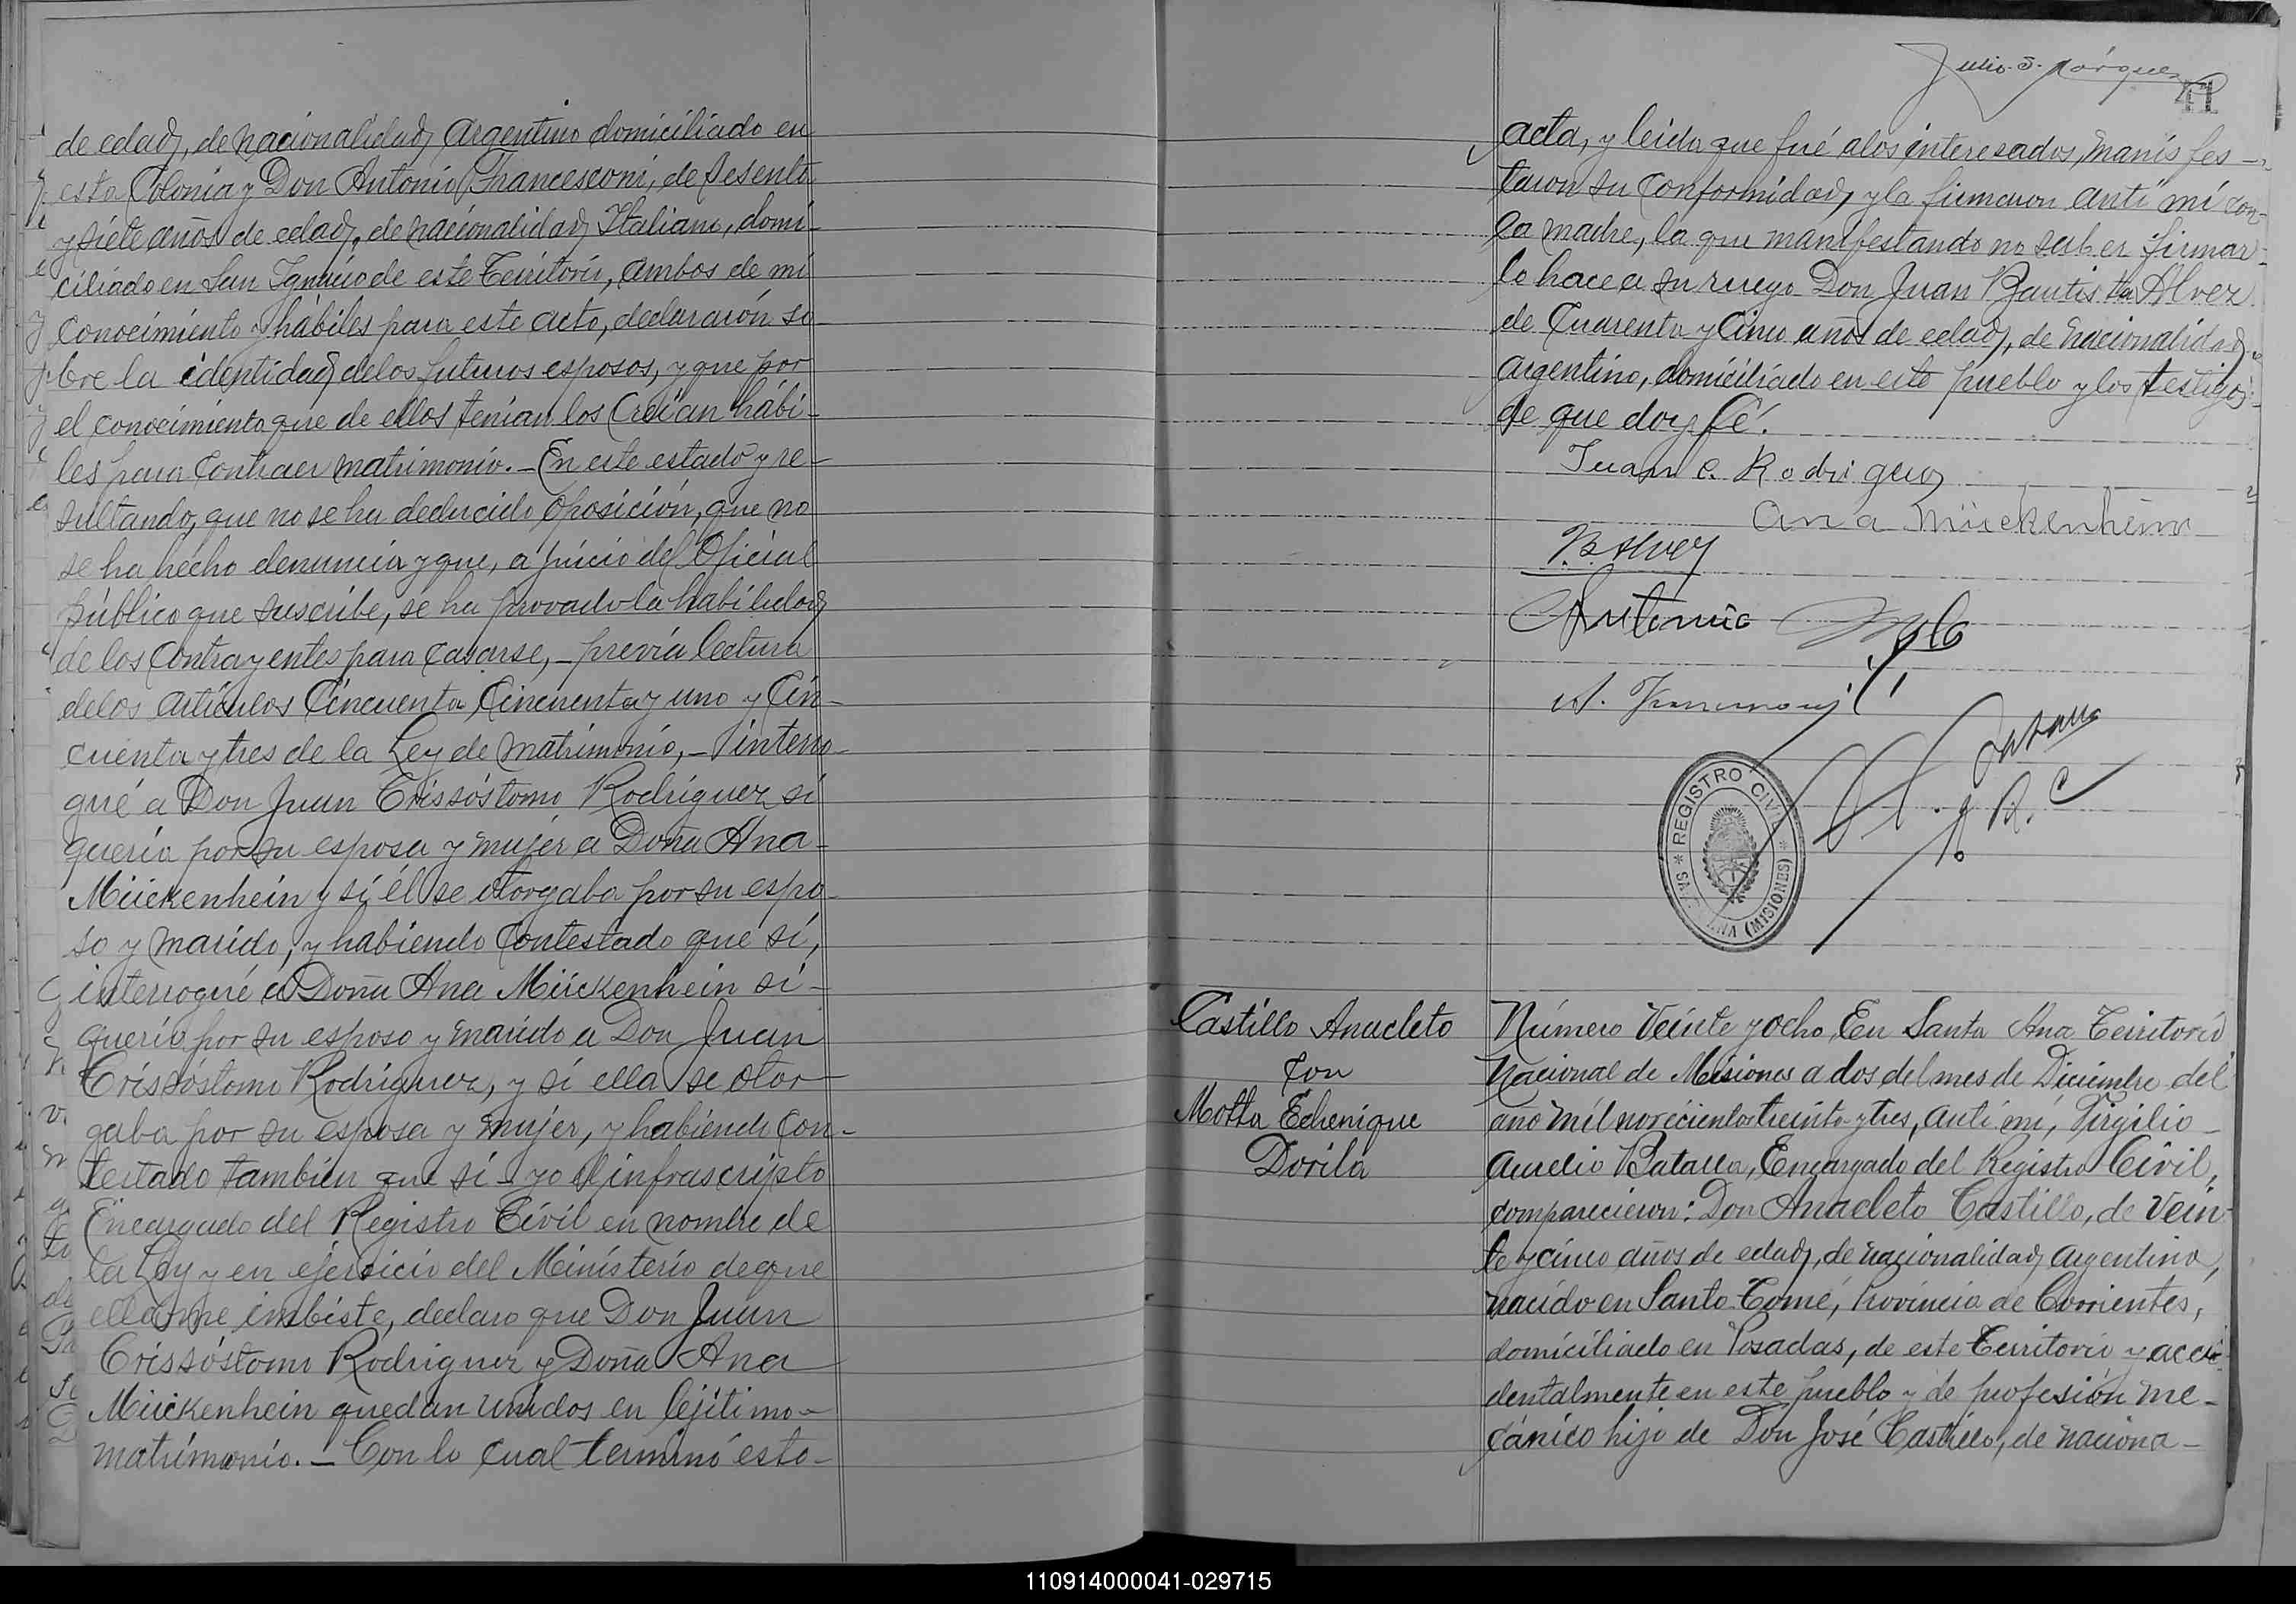 de edad, de nacionalidad Argentino domiciliado en
esta Colonia y Don Antonio Francesconi, de Sesenta
y siete años de edad, de nacionalidad Italiana, domi-
ciliado en San Ignacio de este Territorio, ambos de mi
conocimiento y hábiles para este acto, declararón so-
bre la identidad de los futuros esposos, y que por
el conocimiento que de ellos tenian los Creían hábi-
les para Contraer matrimonio. - En este estado y re-
sultando, que no se ha deducido Oposición, que no
se ha hecho denuncia y que, a juicio del Oficial
público que suscribe, se ha provado la habilidad
de los Contrayentes para casarse, - previa lectura
de los artículos Cincuenta, Cincuenta y uno y Cin-
cuenta y tres de la Ley de matrimonio, - interro-
gué a Don Juan Crissóstomo Rodriguez si
quería por su esposa y mujer a Doña Ana-
Mückenhein y si él se otorgaba por su espo-
so y marido, y habiendo Contestado que sí,
interrogué a Doña Ana Mückenhein si-
quería por su esposo y marido a Don Juan
Crissóstomo Rodriguez, y si ella se otor-
gaba por su esposa y mujer, y habiendo Con-
testado también que sí - yo el infrascripto
Encargado del Registro Civil en nombre de
la Ley y en ejersicio del Ministerio de que
ella me imbiste, declaro que Don Juan
Crissóstomo Rodriguez y Doña Ana
Mückenhein quedan unidos en lejítimo-
matrimonio. - Con lo Cual terminó esta-
Julio S. Márquez
41
acta, y leida que fué a los interesados, manifes-
taron su Conformidad, y la firmaron anti mí con-
la madre, la que manifestando no saber firmar-
lo hace a su ruego Don Juan Bautista Alvez
de Cuarenta y Cinco años de edad, de nacionalidad
argentino, domiciliado en este pueblo y los testigos
de que doy fé.
Juan C. Rodriguez
Ana Mückenheim
J.B. Alvez
Antonio
A. Francesconi
REGISTRO CIVIL
SANTA ANA (MISIONES)
Castillo Anacleto
Con
Motta Echenique
Dorila
Número Veinte y ocho, En Santa Ana Territorio
Nacional de Misiones a dos del mes de Diciembre del
año mil novecientos treinta y tres, anti mí, Virgilio-
Aurelio Batalla, Encargado del Registro Civil,
comparecieron: Don Anacleto Castillo, de Vein-
te y cinco años de edad, de nacionalidad argentina,
nacido en Santo Tomé, Provincia de Corrientes,
domiciliado en Posadas, de este Territorio y acci-
dentalmente en este pueblo y de profesión me-
cánico hijo de Don José Castillo, de naciona-
110914000041-029715